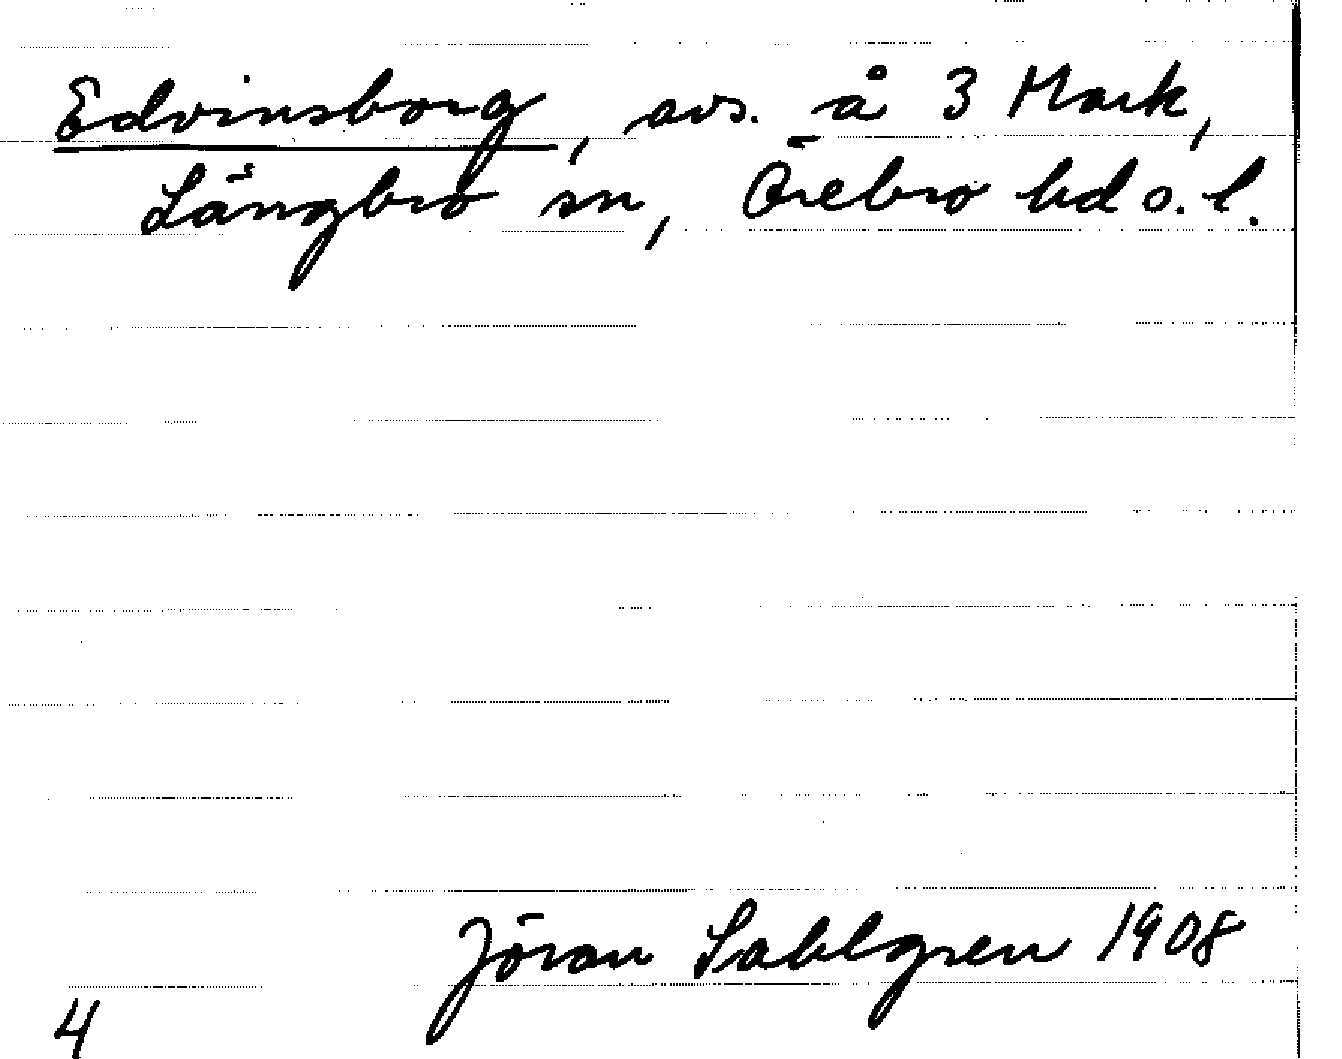 Edvinsborg, avs. å 3 Mark,
Långbro sn, Örebro hd o. l.
Jöran Sahlgren 1908
4